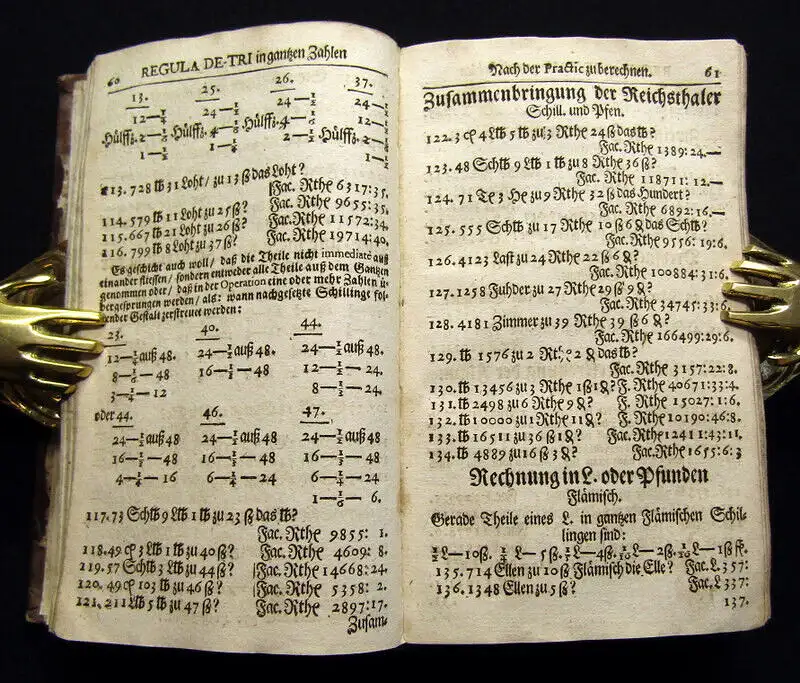 60 REGULA DE-TRI in gantzen Zahlen
13. 25. 26. 37.
12—1/4 24—1/2 24—1/2 24—1/2
Hülff: 2—1/6 Hülff: 4—1/6 Hülff: 4—1/6 12—1/2
1—1/2 2—1/2 Hülff: 2—1/6
1—1/2
113. 728 ℔ 31 Loht / zu 13 ß das Loht?
Fac. Rthe 6317:35.
114. 579 ℔ 11 Loht zu 25 ß? Fac. Rthe 9655:35.
115. 667 ℔ 21 Loht zu 26 ß? Fac. Rthe 11572:34.
116. 799 ℔ 8 Loht zu 37 ß? Fac. Rthe 19714:40.
Es geschicht auch woll / daß die Theile nicht immediatè auß
einander fliessen / sondern entweder alle Theile auß dem Gantzen
genommen oder / daß in der Operation eine oder mehr Zahlen ü-
bergesprungen werden / als: wann nachgesetzte Schillinge fol-
gender Gestalt zerstreuet werden:
23. 40. 44.
12—1/4 auß 48. 24—1/2 auß 48. 24—1/2 auß 48.
8—1/6—48 16—1/3—48 12—1/2—24.
3—1/4—12 8—1/3—24.
oder 44. 46. 47.
24—1/2 auß 48 24—1/2 auß 48 24—1/2 auß 48.
16—1/3—48 16—1/3—48 16—1/3—48.
4—1/4—16 6—1/4—24 6—1/4—24
1—1/6—6.
117. 73 Sch℔ 9 L℔ 1 ℔ zu 23 ß das ℔?
Fac. Rthe 9855: 1.
118. 49 ₵ 3 L℔ 1 ℔ zu 40 ß? Fac. Rthe 4609: 8.
119. 57 Sch℔ 3 L℔ zu 44 ß? Fac. Rthe 14668:24.
120. 49 ₵ 103 ℔ zu 46 ß? Fac. Rthe 5358: 2.
121. 211 L℔ 5 ℔ zu 47 ß? Fac. Rthe 2897:17.
Zusam-
Nach der Practic zu berechnen. 61
Zusammenbringung der Reichsthaler
Schill. und Pfen.
122. 3 ₵ 4 L℔ 5 ℔ zu 3 Rthe 24 ß das ℔?
Fac. Rthe 1389:24.—
123. 48 Sch℔ 9 L℔ 1 ℔ zu 8 Rthe 36 ß?
Fac. Rthe 118711: 12.—
124. 71 Te 3 He zu 9 Rthe 32 ß das Hundert?
Fac. Rthe 6892:16.—
125. 555 Sch℔ zu 17 Rthe 10 ß 6 ₰ das Sch℔?
Fac. Rthe 9556: 19:6.
126. 4123 Last zu 24 Rthe 22 ß 6 ₰?
Fac. Rthe 100884:31:6.
127. 1258 Fuhder zu 27 Rthe 29 ß 9 ₰?
Fac. Rthe 34745:33:6.
128. 4181 Zimmer zu 39 Rthe 39 ß 6 ₰?
Fac. Rthe 166499:29:6.
129. ℔ 1576 zu 2 Rthe 2 ₰ das ℔?
Fac. Rthe 3157:22:8.
130. ℔ 13456 zu 3 Rthe 1 ß 1 ₰? F. Rthe 40671:33:4.
131. ℔ 2498 zu 6 Rthe 9 ₰? F. Rthe 15027:1:6.
132. ℔ 10000 zu 1 Rthe 11 ₰? F. Rthe 10190:46:8.
133. ℔ 16511 zu 36 ß 1 ₰? Fac. Rthe 12411:43:11.
134. ℔ 4889 zu 16 ß 3 ₰? Fac. Rthe 1655:6:3
Rechnung in L. oder Pfunden
Flämisch.
Gerade Theile eines L. in gantzen Flämischen Schil-
lingen sind:
1/2 L—10 ß. 1/4 L—5 ß. 1/5 L—4 ß. 1/10 L—2 ß. 1/20 L—1 ß fl.
135. 714 Ellen zu 10 ß Flämisch die Elle? Fac. L 357:
136. 1348 Ellen zu 5 ß? Fac. L 337:
137.